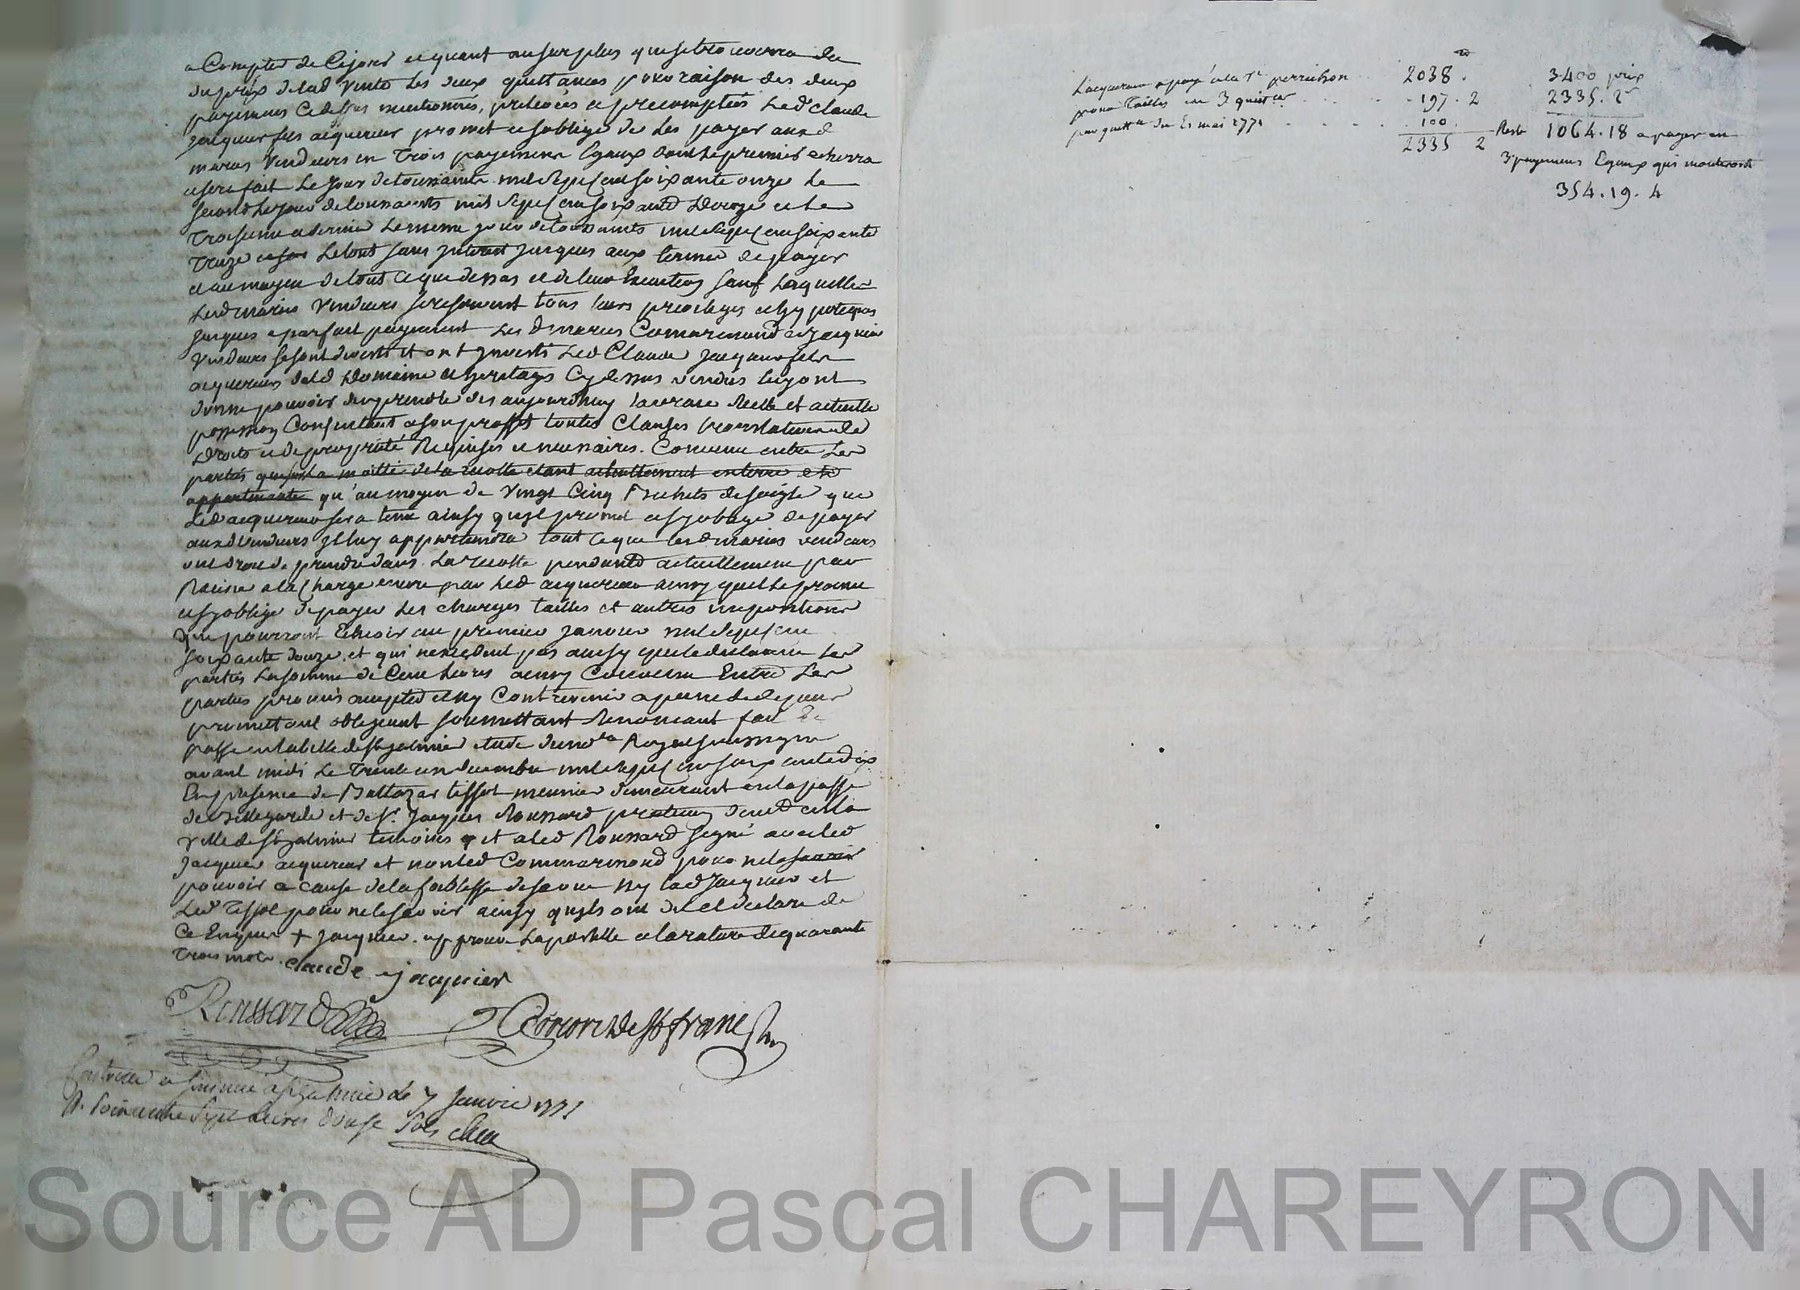 a Compter de Cejour et quant ausurplus quisetrouverra du
du prix delad vente les deux quittances pour raison des deux
payemens Cydessus mentionnés, prelevées et precomptées Led Claude
Jacquier fils acquereur promet et soblige de les payer auxd
mariés Vendeurs en Trois payemens Egaux dont Le premier echerra
et sera fait Le Jour detoussaints mil sept cens soixante onze Le
second Le jour de toussaints mil sept cens soixante Douze et Le
Troisieme et dernier Le meme jour detoussaints mil sept cens soixante
Treize et Le tout sans Jnterest jusques aux termes de payer
et au moyen de tout Ce que dessus et de leur Execution sauf Laquelle
Lesd mariés Vendeurs se reservent tous leurs privileges et hypoteques
jusques a parfait payement Les d mariés Commarmond et Jacquier
Vendeurs se sont devestû et ont Jnvesti Led Claude Jacquier fils
acquereur dud Domaine et heritages Cydessus vendus luy ont
donné pouvoir d'en prendre des aujourdhuy la vraie reelle et actuelle
possession Consentant a son proffit toutes Clauses translatives de
Droits et de proprieté Requises et necessaires. Convenu entre Les
parties que la moitié de la recolte etant actuellement en terre
appartiendra qu'au moyen de Vingt Cinq Bichets de seigle que
Led acquereur sera tenu ainsy qu'il promet et s'oblige de payer
auxd vendeurs Jl luy appartiendra tout ce que lesd mariés vendeurs
ont droit de prendre dans La recolte pendante actuellement par
Racine a la Charge encore par Led acquereur ainsy quil le promet
et s'oblige de payer Les charges tailles et autres impositions
qui pourront Echeoir au premier Janvier mil sept cens
soixante douze, et qui n'excedent pas ainsy que le declarent les
parties La somme de Cent livres ainsy Convenu Entre Les
parties promis accepté et n'y Contrevenir a peine de depens
promettant obligeant soumettant Renonçant fait et
passé en la ville de St Galmier etude du no.re Royal soussigné
avant midi Le Trente un decembre mil sept cens soixante dix
En presence de Baltazar tissot meunier demeurant en la psse
de Bellegarde et de Sr. Jacques Roussard praticien demt en la
Ville de St Galmier temoins et a led Roussard signé avec led
Jacquier acquereur et non led Commarmond pour ne le savoir
pouvoir a cause de la foiblesse de sa vue ny lad Jacquier et
Led Tissot pour ne le savoir ainsy qu'ils ont dit et declaré de
Ce Enquis + Jacquier. approuvé La postille et la rature de quarante
Trois mots. claude jacquier
Roussard
Controllé et insinué a St Galmier le 7 Janvier 1771
R. Cinquante Sept Livres douze sols
Lacquereur a payé a la Sr perrichon 2038.
pour Tailles en 3 quittces 197. 2
par quittce du 21 mai 1771 100.
2335 2
3400 prix
2335. 2
Reste 1064. 18 a payer en
3 payemens Egaux qui montent
354. 19. 4
Source AD Pascal CHAREYRON